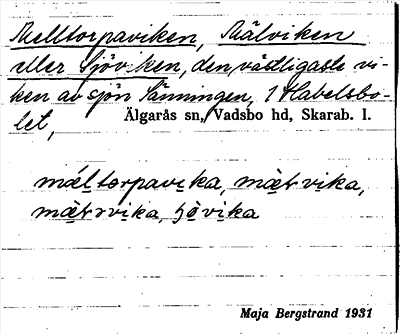 Melltorpaviken, Mälviken
eller Sjöviken, den västligaste vi-
ken av sjön Sänningen, 1 Habelsbo-
let,
Älgarås sn, Vadsbo hd, Skarab. l.
mæltorpavika, mætvika,
mætrvika, sjövika
Maja Bergstrand 1931